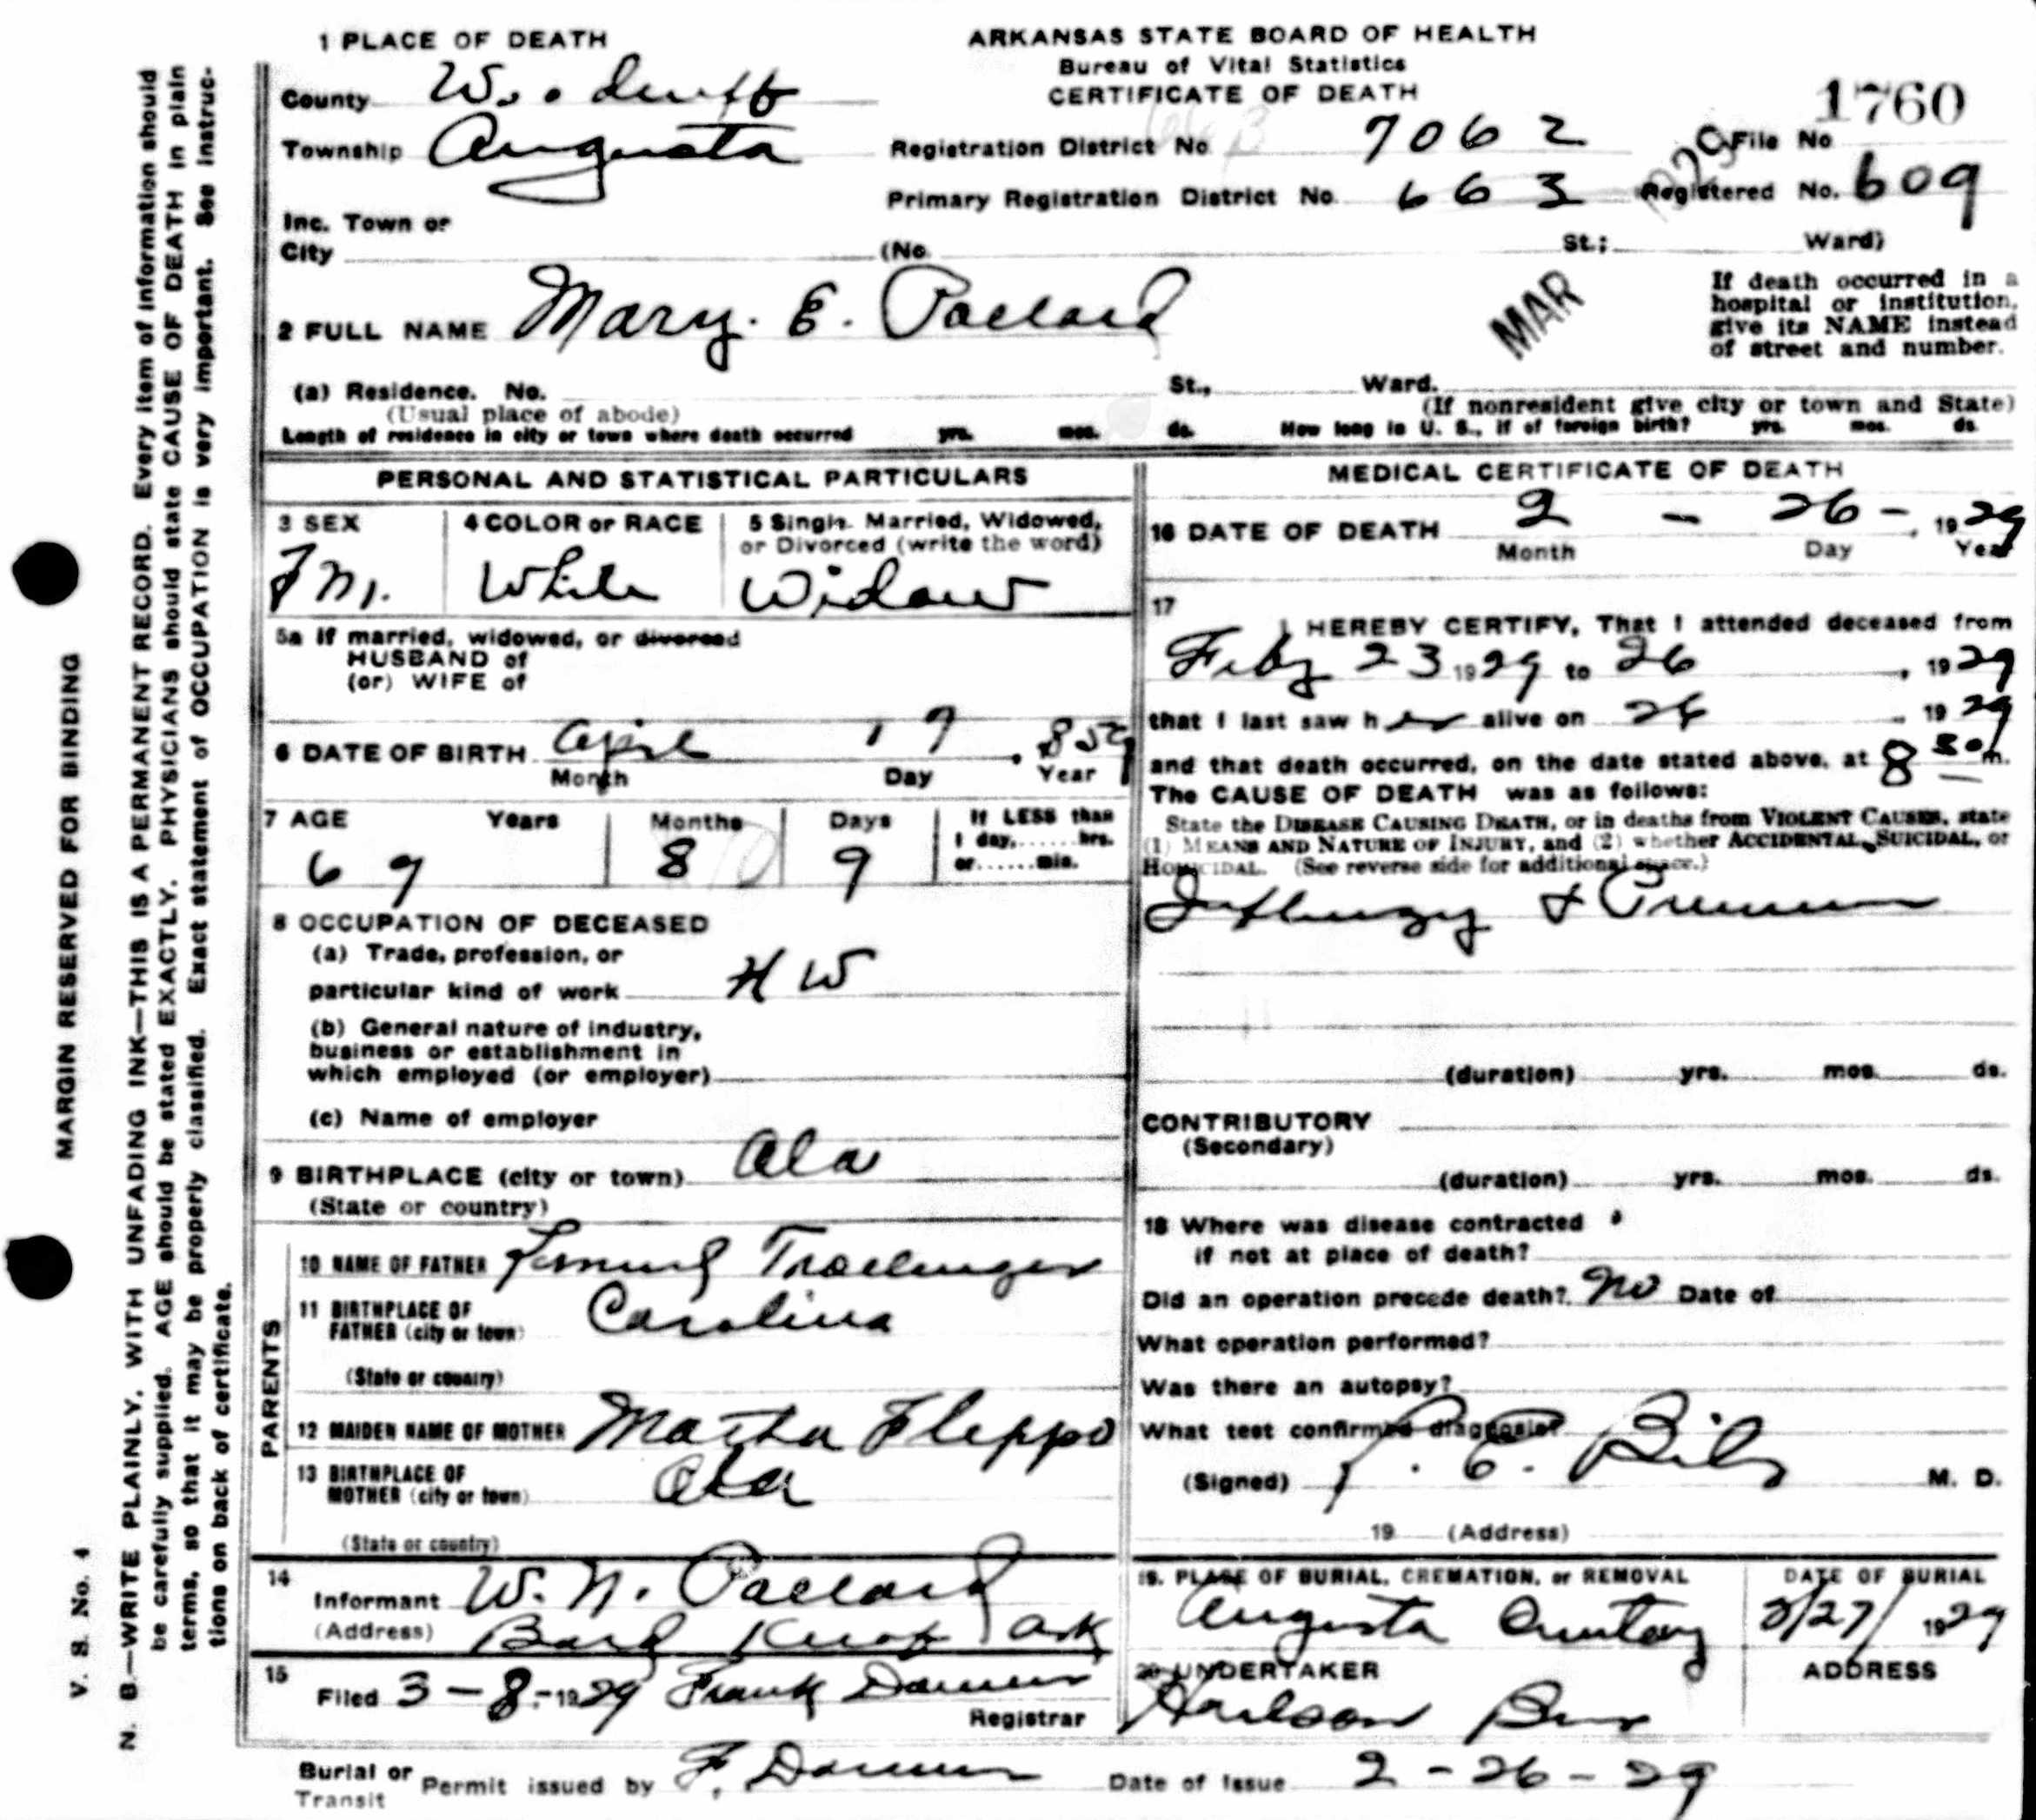 1 PLACE OF DEATH
ARKANSAS STATE BOARD OF HEALTH
Bureau of Vital Statistics
CERTIFICATE OF DEATH
County Woodruff
1760
Township Augusta
Registration District No 7062
File No
Primary Registration District No. 663
Registered No. 609
1929
Inc. Town or
City (No. St.; Ward)
MAR
If death occurred in a
hospital or institution,
give its NAME instead
of street and number.
2 FULL NAME Mary. E. Pollard
(a) Residence. No. St., Ward.
(Usual place of abode) (If nonresident give city or town and State)
Length of residence in city or town where death occurred yrs. mos. ds. How long in U. S., if of foreign birth? yrs. mos. ds.
PERSONAL AND STATISTICAL PARTICULARS
3 SEX
Fm.
4 COLOR or RACE
White
5 Single. Married, Widowed,
or Divorced (write the word)
Widow
5a If married, widowed, or divorced
HUSBAND of
(or) WIFE of
6 DATE OF BIRTH April 17, 1859
Month Day Year
7 AGE Years Months Days If LESS than
1 day, hrs.
or min.
69 8 9
8 OCCUPATION OF DECEASED
(a) Trade, profession, or
particular kind of work H W
(b) General nature of industry,
business or establishment in
which employed (or employer)
(c) Name of employer
9 BIRTHPLACE (city or town) Ala
(State or country)
PARENTS
10 NAME OF FATHER
11 BIRTHPLACE OF
FATHER (city or town) Carolina
(State or country)
12 MAIDEN NAME OF MOTHER Martha Fleppo
13 BIRTHPLACE OF
MOTHER (city or town) Ala
(State or country)
14
Informant W. N. Pollard
(Address) Bald Knob Ark
15
Filed 3-8-1929 Frank
Registrar
MEDICAL CERTIFICATE OF DEATH
16 DATE OF DEATH 2 - 26 -, 1929
Month Day Year
17
I HEREBY CERTIFY, That I attended deceased from
Feby 23 1929 to 26, 1929
that I last saw her alive on 26, 1929
and that death occurred, on the date stated above, at 8 30 m.
The CAUSE OF DEATH was as follows:
State the DISEASE CAUSING DEATH, or in deaths from VIOLENT CAUSES, state
(1) MEANS AND NATURE OF INJURY, and (2) whether ACCIDENTAL, SUICIDAL, or
HOMICIDAL. (See reverse side for additional space.)
Influenzy +
(duration) yrs. mos. ds.
CONTRIBUTORY
(Secondary)
(duration) yrs. mos. ds.
18 Where was disease contracted
if not at place of death?
Did an operation precede death? No Date of
What operation performed?
Was there an autopsy?
What test confirmed diagnosis?
(Signed) M. D.
19 (Address)
19. PLACE OF BURIAL, CREMATION, or REMOVAL
Augusta
DATE OF BURIAL
2/27/1929
20 UNDERTAKER
ADDRESS
Burial or
Transit Permit issued by F.
Date of Issue 2-26-29
MARGIN RESERVED FOR BINDING
V. S. No. 4
N. B.—WRITE PLAINLY, WITH UNFADING INK—THIS IS A PERMANENT RECORD. Every item of information should
be carefully supplied. AGE should be stated EXACTLY. PHYSICIANS should state CAUSE OF DEATH in plain
terms, so that it may be properly classified. Exact statement of OCCUPATION is very important. See instruc-
tions on back of certificate.